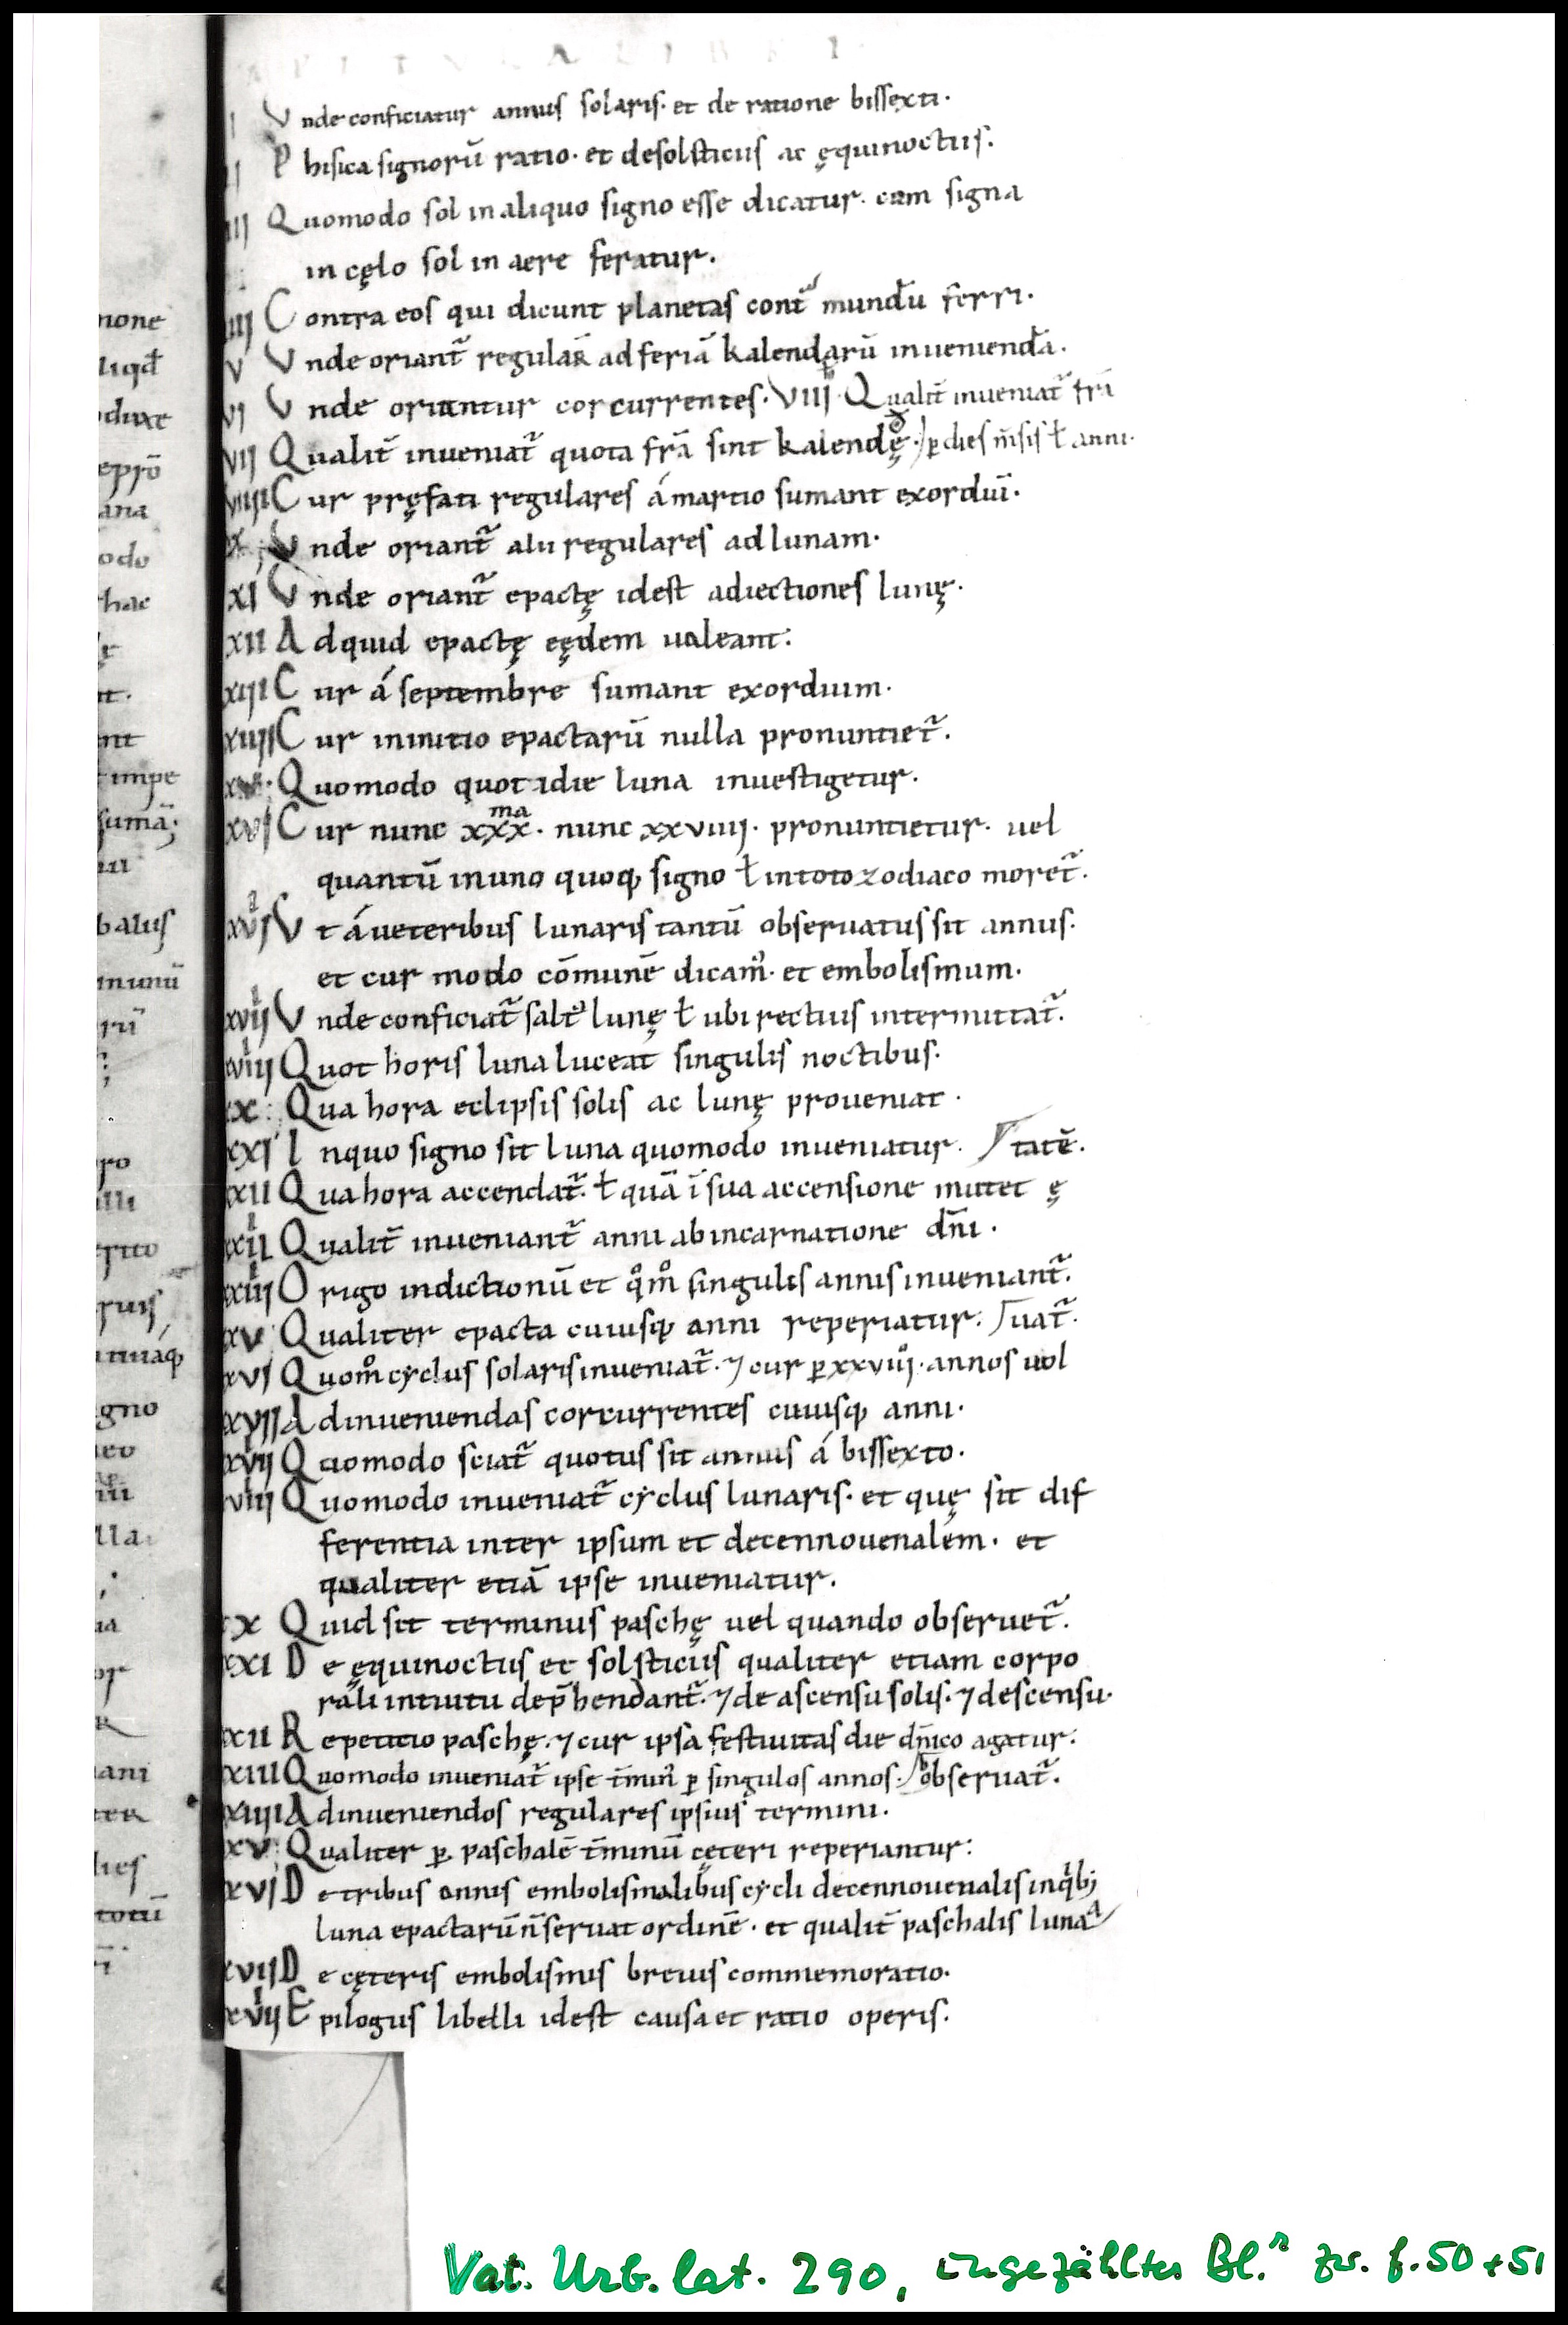 CAPITVLA LIBRI
I Vnde conficiatur annus solaris. et de ratione bissexti.
II Phisica signorū ratio. et de solsticiis ac ęquinoctiis.
III Quomodo sol in aliquo signo esse dicatur. cum signa
in cęlo sol in aere feratur.
IIII Contra eos qui dicunt planetas contᵃ mundū ferri.
V Vnde oriant̃ regulaR̄ ad feriā kalendarū inueniendā.
VI Vnde oriuntur corcurrentes. VIII Qualit̄ inueniat̃ fr̄a
VII Qualit̄ inueniat̃ quota fr̄a sint kalendę. ꝑ dies m̄sis ł anni.
VIIII Cur pręfati regulares á martio sumant exordiū.
X Vnde oriant̃ alii regulares ad lunam.
XI Vnde oriant̃ epactę idest adiectiones lunę.
XII Ad quid epactę eędem ualeant.
XIII Cur á septembre sumant exordium.
XIIII Cur in initio epactarū nulla pronuntiet̃.
XV Quomodo quotidie luna inuestigetur.
XVI Cur nunc xxxᵐᵃ. nunc xxviiii. pronuntietur. uel
quantū in uno quoq; signo ł in toto zodiaco moret̃.
XVII Vt á ueteribus lunaris tantū obseruatus sit annus.
et cur modo cōmunē dicam᾽. et embolismum.
XVIII Vnde conficiat̃ salt᾽ lunę ł ubi rectius intermittat̃.
XVIIII Quot horis luna luceat singulis noctibus.
XX Qua hora eclipsis solis ac lunę proueniat.
XXI In quo signo sit luna quomodo inueniatur. tatē.
XXII Qua hora accendat̃. ł quā ī sua accensione mutet ę
XXIII Qualit̄ inueniant̃ anni ab incarnatione dn̄i.
XXIIII Origo indictionū et qͦmͦ singulis annis inueniant̃.
XXV Qualiter epacta cuiusq; anni reperiatur. uat̃.
XXVI Quomͦ cyclus solaris inueniat̃. ⁊ cur ꝑ xxviii. annos uol
XXVII Ad inueniendas corcurrentes cuiusq; anni.
XXVIII Quomodo sciat̃ quotus sit annus á bissexto.
XXVIIII Quomodo inueniat̃ cyclus lunaris. et quę sit dif
ferentia inter ipsum et decennouenalem. et
qualiter etiā ipse inueniatur.
XXX Quid sit terminus paschę uel quando obseruet̃.
XXXI De ęquinoctiis et solsticiis qualiter etiam corpo
rali intuitu dep̄hendant̃. ⁊ de ascensu solis. ⁊ descensu.
XXXII Repetitio paschę. ⁊ cur ipsa festiuitas die dn̄ico agatur.
XXXIII Quomodo inueniat̃ ipse t̄min᾽ ꝑ singulos annos. obseruat̃.
XXXIIII Ad inueniendos regulares ipsius termini.
XXXV Qualiter ꝑ paschalē t̄minū cęteri reperiantur.
XXXVI De tribus annis embolismalibus cycli decennouenalis in qⁱb;
luna epactarū n̄ seruat ordinē. et qualit̄ paschalis luna
XXXVII De cęteris embolismis breuis commemoratio.
XXXVIII Epilogus libelli idest causa et ratio operis.
none
liqđ
duxe
eprō
ana
odo
hac
nt
impe
sumā;
balus
munū
rū
pro
illi
erito
ruis
gno
lla
ani
ter
dies
totū
Vat. Urb. lat. 290, ungezähltes Bl.ʳ zw. f. 50 + 51